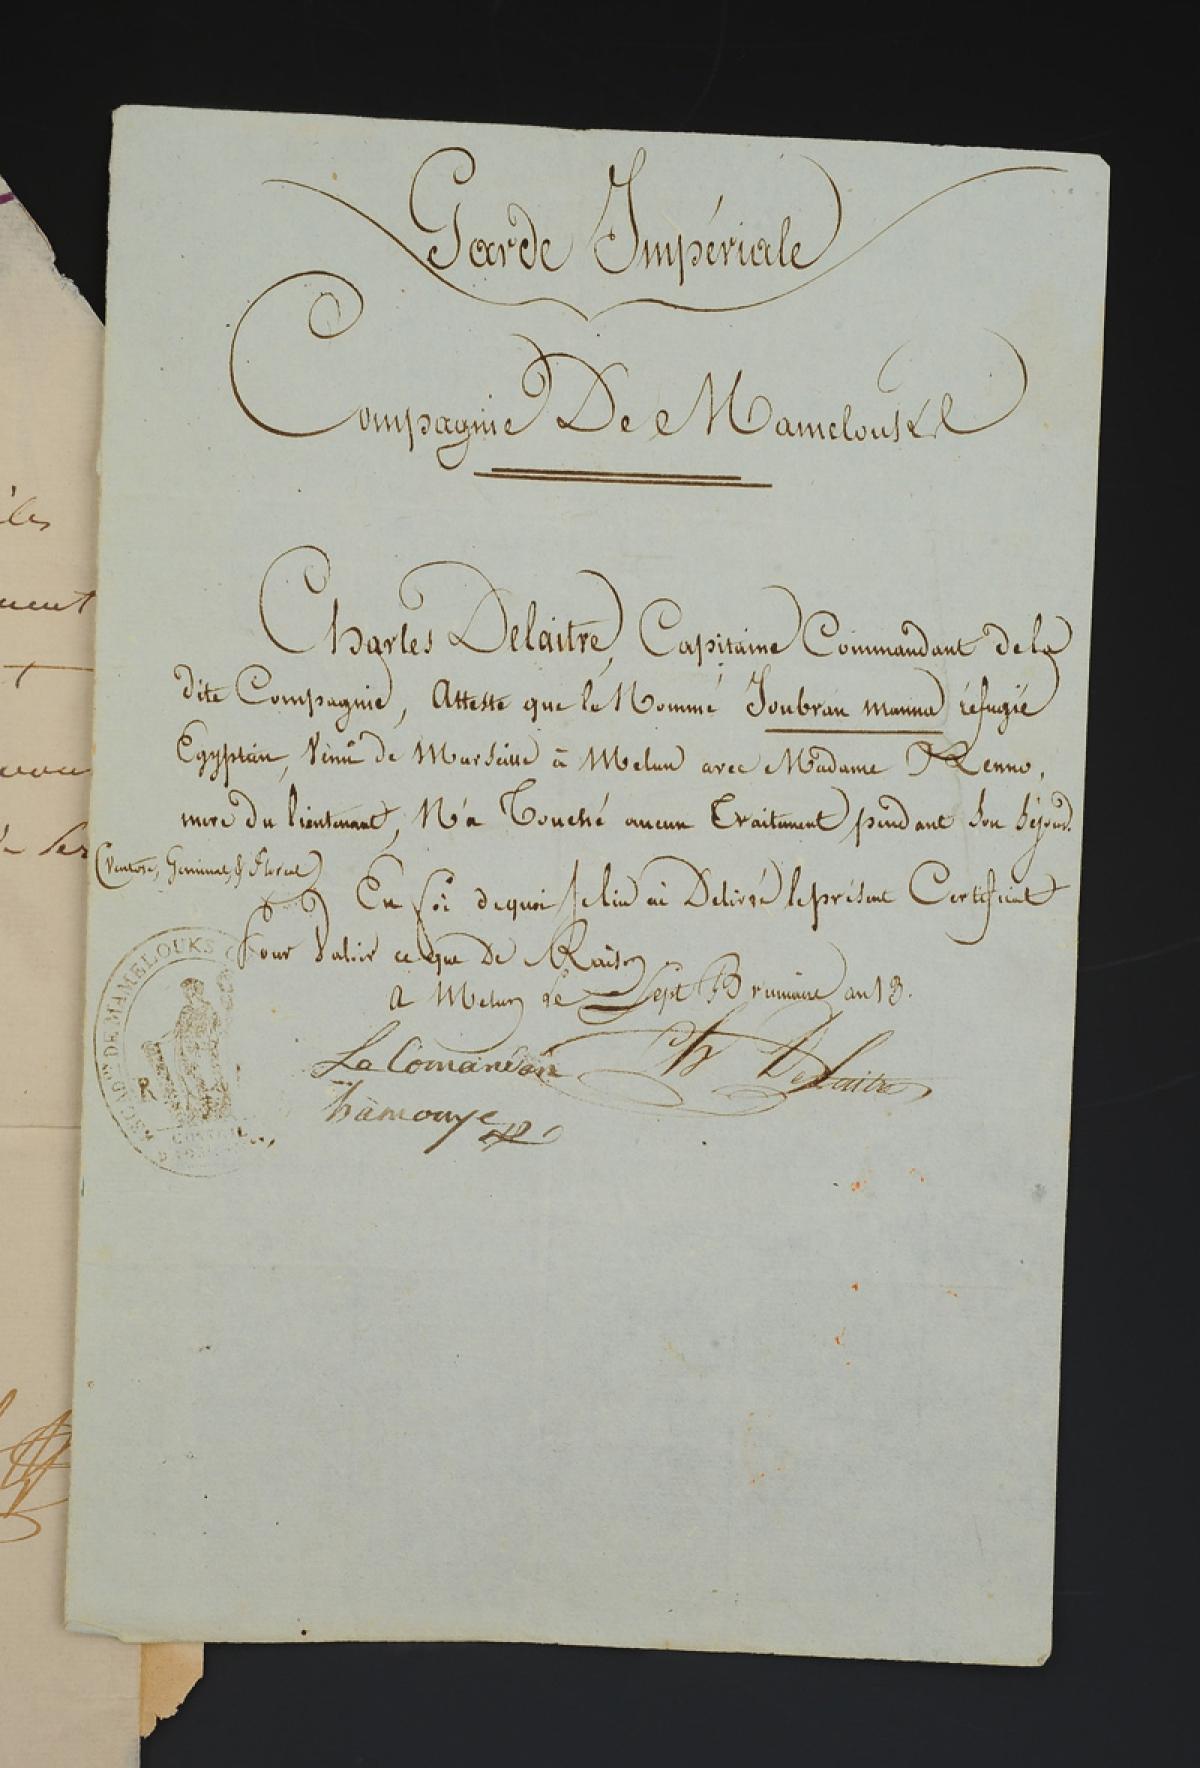 Garde Impériale
Compagnie De Mamelouks
Charles Delaitre, Capitaine Commandant de la
dite Compagnie, Atteste que le Nommé Joubran manna réfugié
Egyptian, Venû de Marseille à Melun avec Madame Renno,
mere du lieutenant, N'a Touché aucun Traitement pendant son séjour
(Ventose, Germinal & Floreal)
En foi de quoi je lui ai Delivré le présent Certificat
Pour Valoir ce que de Raison
A Melun le Sept Brumaire an 13.
Ch Delaitre
Le Comandan
hamouye
ESCADON DE MAMELOUKS
R
CONSEIL
iles
ment